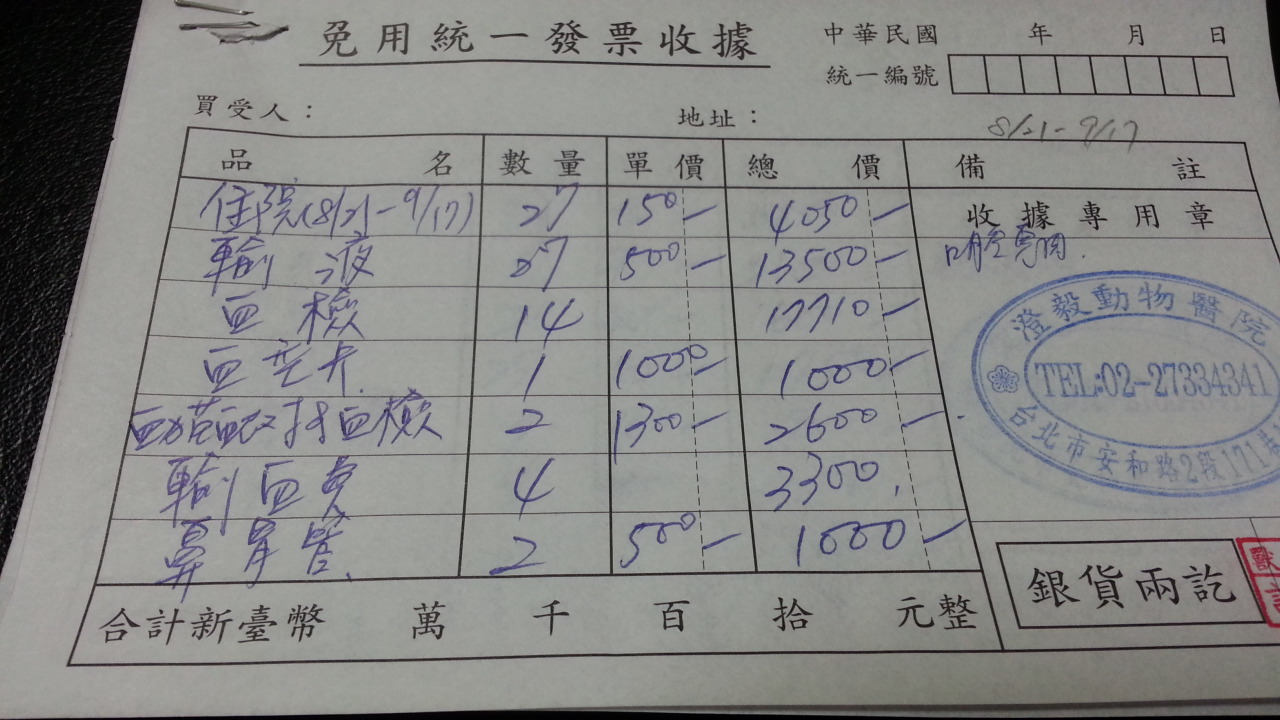 免用統一發票收據
中華民國 年 月 日
統一編號
買受人：
地址：
8/21-9/17
品名 數量 單價 總價 備註
住院(8/21-9/17) 27 150 4050
收據專用章
輸液 27 500 13500
血檢 14 17710
1 1000 1000
血檢 2 1300 2600
輸血 4 3300
鼻胃管 2 500 1000
澄毅動物醫院
TEL:02-27334341
台北市安和路2段171巷
合計新臺幣 萬 千 百 拾 元整
銀貨兩訖
獸